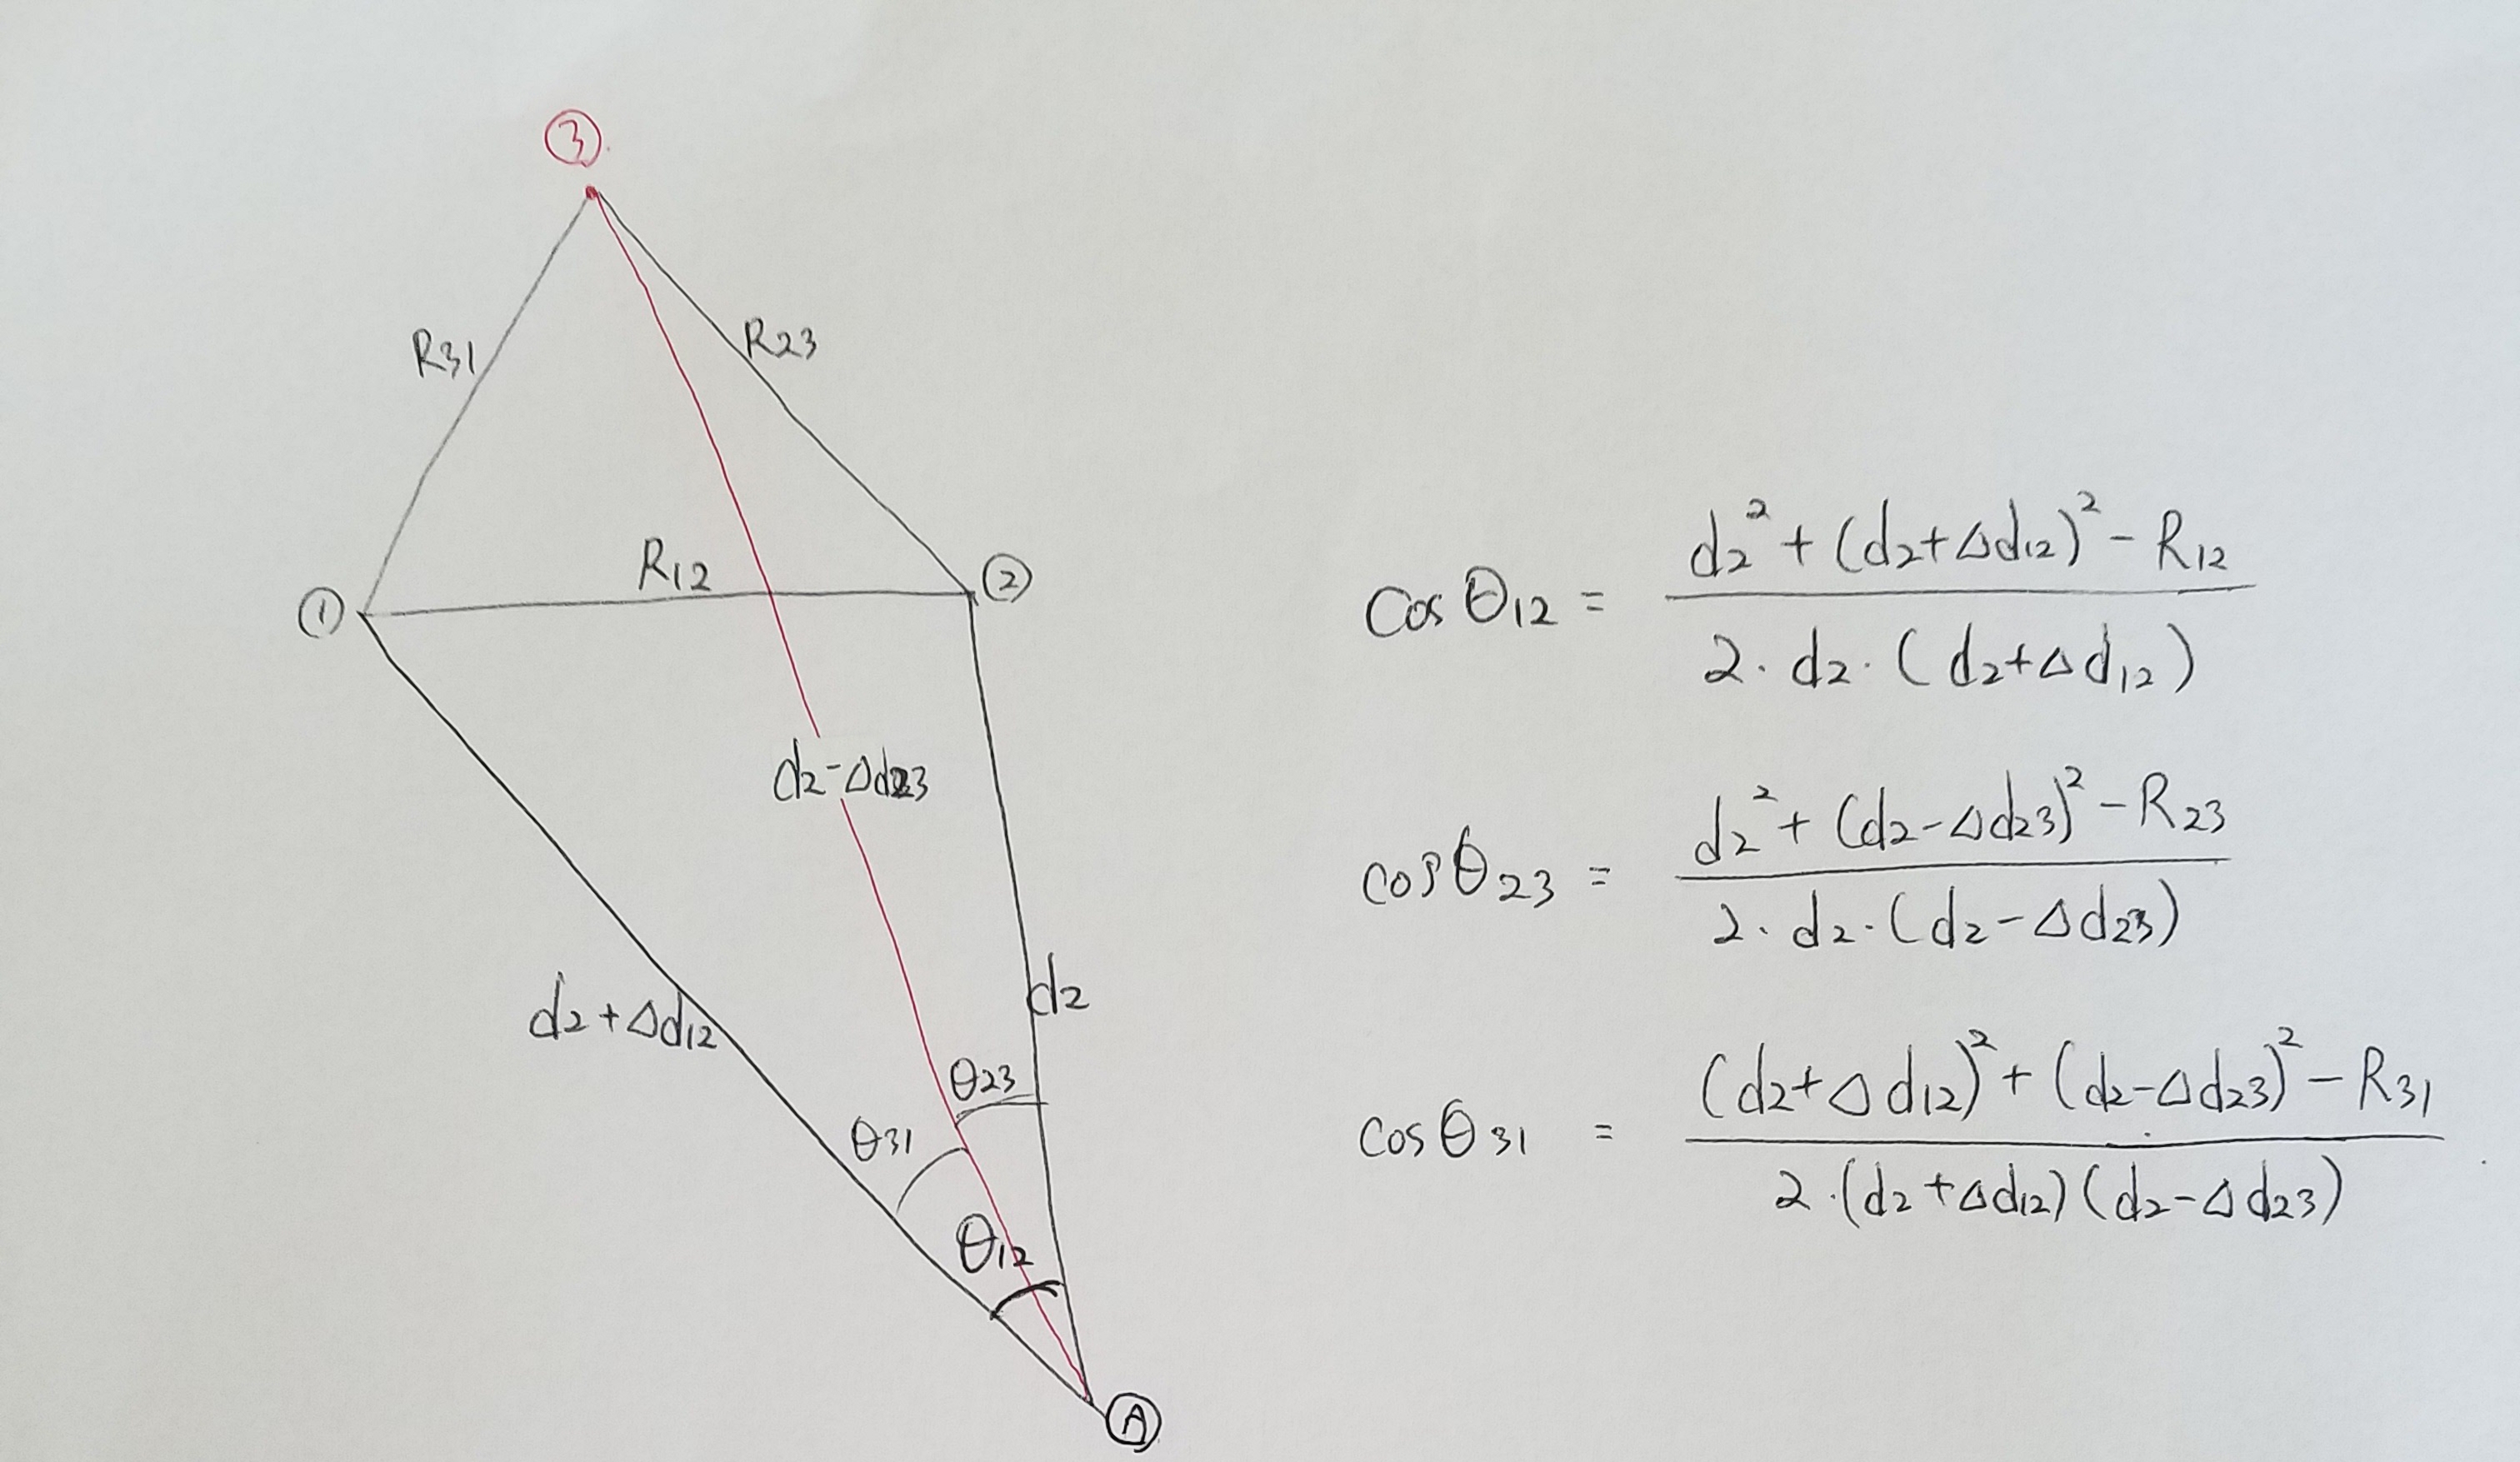 ③
R31
R23
R12
①
②
d2-Δd23
d2
d2+Δd12
θ23
θ31
θ12
Ⓐ
cos θ12 = (d2² + (d2+Δd12)² - R12) / (2·d2·(d2+Δd12))
cosθ23 = (d2² + (d2-Δd23)² - R23) / (2·d2·(d2-Δd23))
cosθ31 = ((d2+Δd12)² + (d2-Δd23)² - R31) / (2·(d2+Δd12)(d2-Δd23))